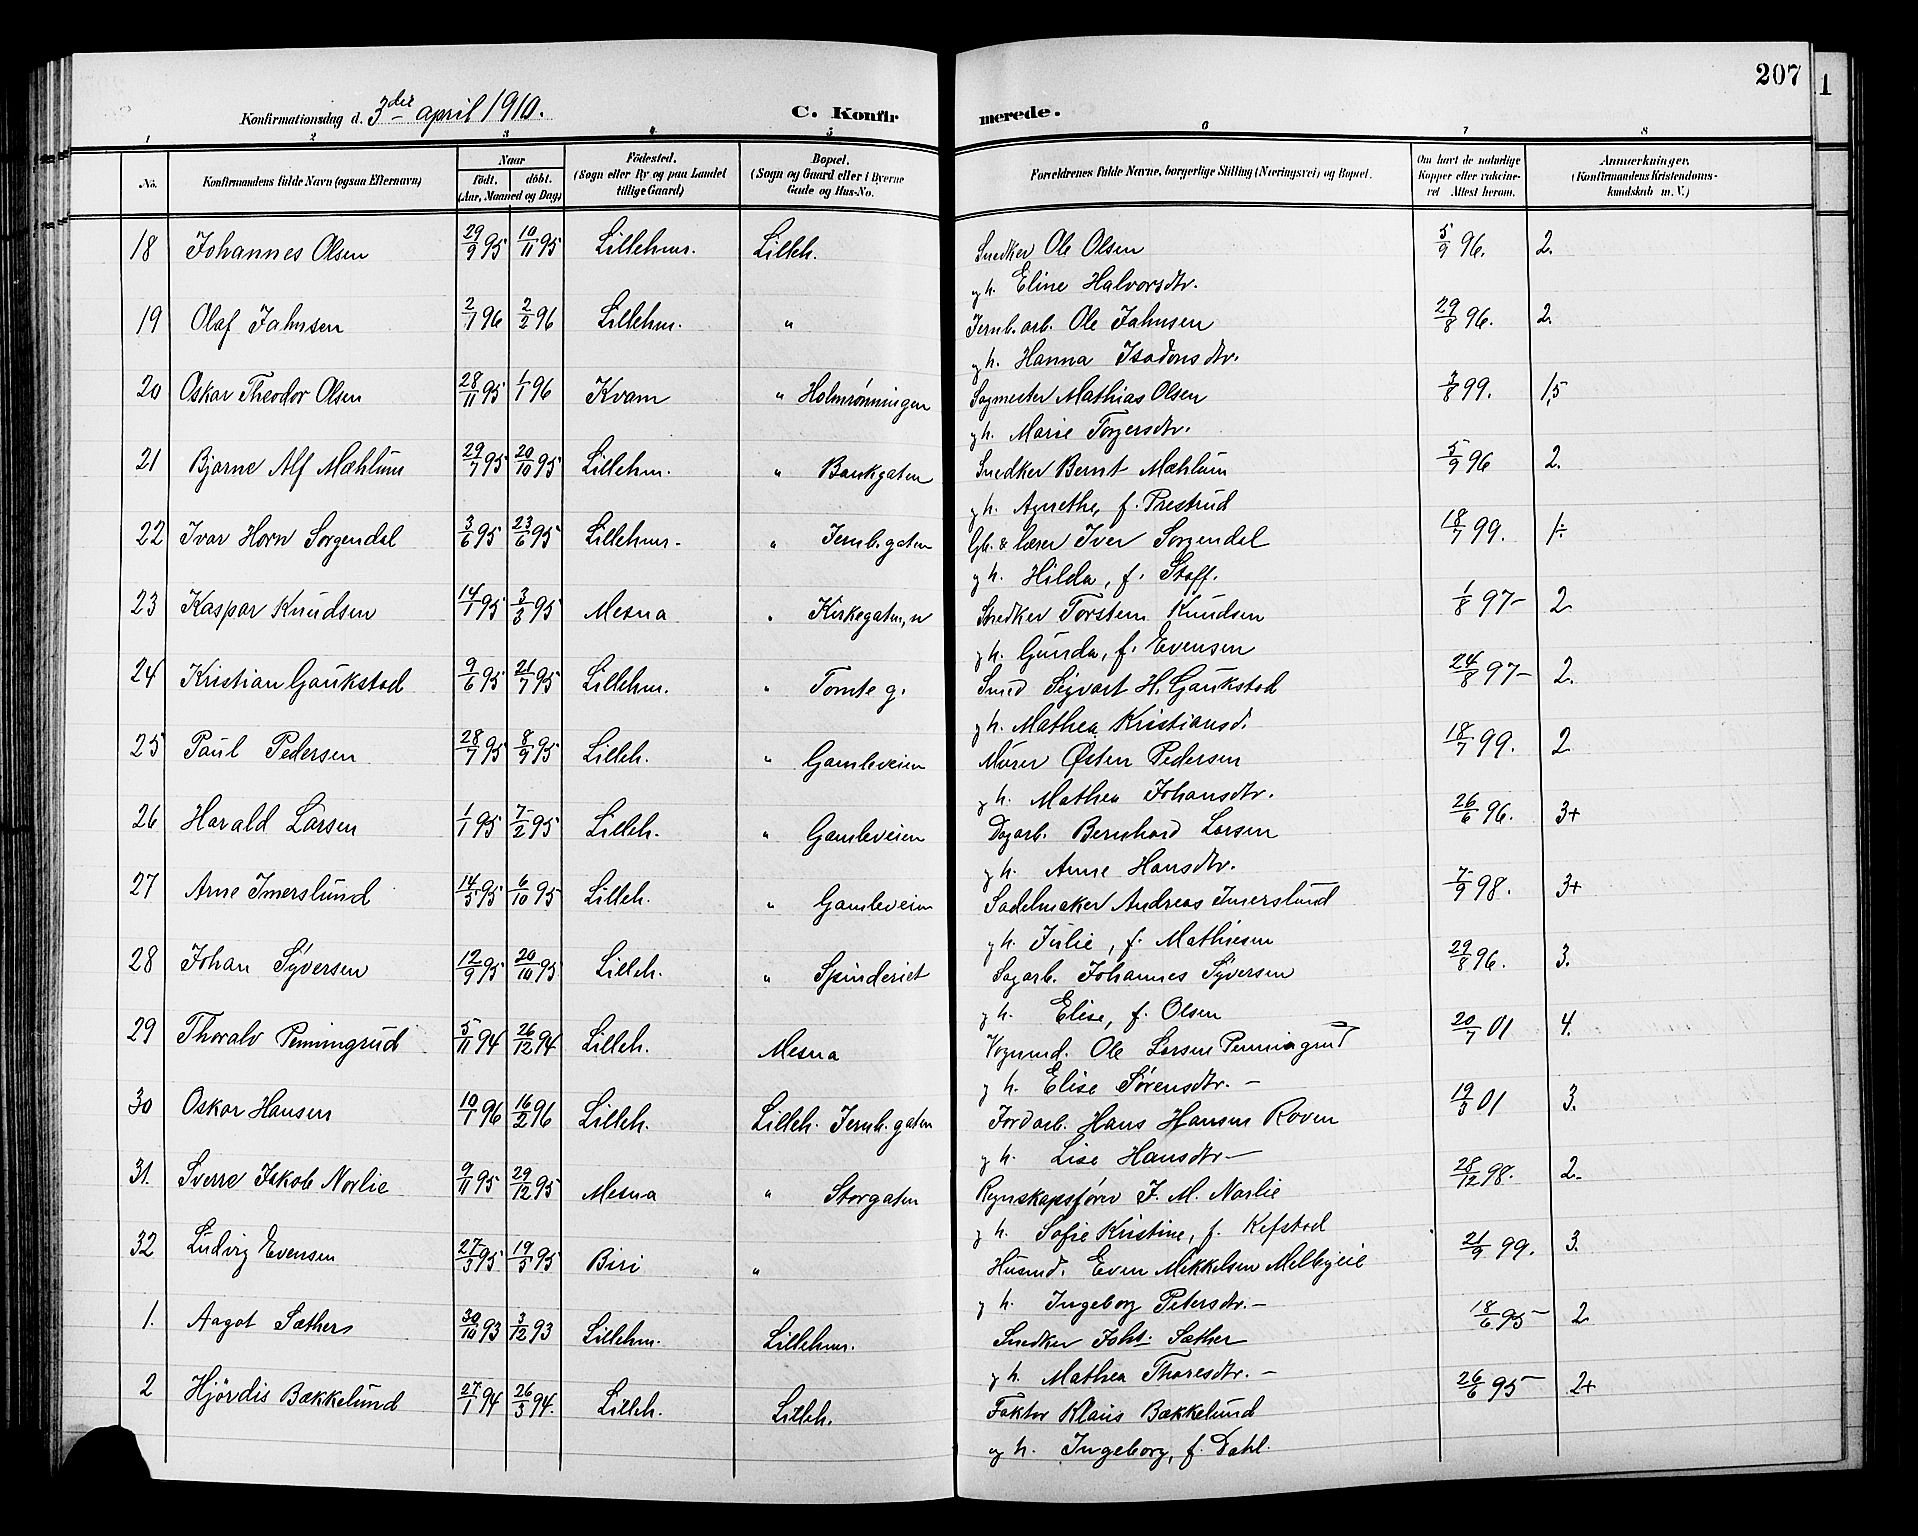 207
1
Konfirmationsdag d. 3die april 1910.
C. Konfirmerede.
1 2 3 4 5 6 7 8
No. Konfirmandens fulde Navn (ogsaa Efternavn) Naar Födt, döbt. (Aar, Maaned og Dag) Födested. (Sogn eller By og paa Landet tillige Gaard) Bopæl. (Sogn og Gaard eller i Byerne Gade og Hus-No. Forældrenes fulde Navne, borgerlige Stilling (Næringsvei) og Bopæl. Om havt de naturlige Kopper eller vakcineret Attest herom. Anmærkninger. (Konfirmandens Kristendomskundskab m. V.)
18 Johannes Olsen 29/9 95 10/11 95 Lillehmr. Lilleh. Snedker Ole Olsen 5/9 96. 2.
g h. Eline Halvorsdtr.
19 Olaf Jahnsen 2/1 96 2/2 96 Lillehm. " Jernb. arb. Ole Jahnsen 29/8 96. 2.
g h. Hanna Isadonsdtr.
20 Oskar Theodor Olsen 28/11 95 1/1 96 Kvam " Holmrønningen Sagmester Mathias Olsen 3/8 99. 1,5
g h. Marie Torgersdtr.
21 Bjarne Alf Mæhlum 29/7 95 20/10 95 Lillehm. " Bankgaten Snedker Bernt Mæhlum 5/9 96 2.
g h. Agnethe, f. Prestrud
22 Ivar Horn Sorgendal 3/6 95 23/6 95 Lillehmr. " Jernb. gaten Gb. & lærer Iver Sorgendal 18/7 99. 1÷
g h. Hilda, f. Staff.
23 Kaspar Knudsen 14/1 95 3/3 95 Mesna " Kirkegaten, n Snedker Torsten Knudsen 1/8 97- 2.
g h. Gunda, f. Evensen
24 Kristian Gaukstad 9/6 95 21/7 95 Lillehm. " Tomte g. Smed Sigvart H. Gaukstad 24/8 97- 2.
g h. Mathea Kristiansd.
25 Paul Pedersen 28/7 95 8/9 95 Lilleh. " Gamleveien Murer Østen Pedersen 18/7 99. 2
g h. Mathea Johansdtr.
26 Harald Larsen 1/1 95 7/2 95 Lilleh. " Gamleveien Dagarb. Bernhard Larsen 26/6 96. 3+
g h. Anne Hansdtr.
27 Arne Imerslund 14/5 95 6/10 95 Lilleh. " Gamleveien Sadelmaker Andreas Imerslund 7/9 98. 3+
g h. Julie, f. Mathiesen
28 Johan Syversen 12/9 95 20/10 95 Lilleh. " Spinderiet Sagarb. Johannes Syversen 29/8 96. 3.
g h. Elise, f. Olsen
29 Thoralv Penningrud 5/11 94 26/12 94 Lilleh. Mesna Vognmd. Ole Larsen Penningrud 20/7 01 4.
g h. Elise Sørensdtr. -
30 Oskar Hansen 10/1 96 16/2 96 Lilleh. Lilleh. Jernb. gaten Jordarb. Hans Hansen Roven 19/3 01 3.
g h. Lise Hansdtr -
31. Sverre Jakob Norlie 9/11 95 29/12 95 Mesna " Storgaten Regnskapsfører J. M. Norlie 28/12 98. 2.
g h. Sofie Kristine, f. Kefstad
32 Ludvig Evensen 27/3 95 19/5 95 Biri " Husmd. Even Mikkelsen Melbyeie 21/9 99. 3.
g h. Ingeborg Petersdtr. -
1. Aagot Sæthers 30/10 93 3/12 93 Lillehm. Lillehmr. Snedker Johs. Sæther 18/6 95- 2.
g h. Mathea Tharesdtr. -
2 Hjördis Bækkelund 27/1 94 26/3 94. Lilleh. Lilleh. Faktor Klaus Bækkelund 26/6 95- 2+
og h. Ingeborg, f. Dahl.